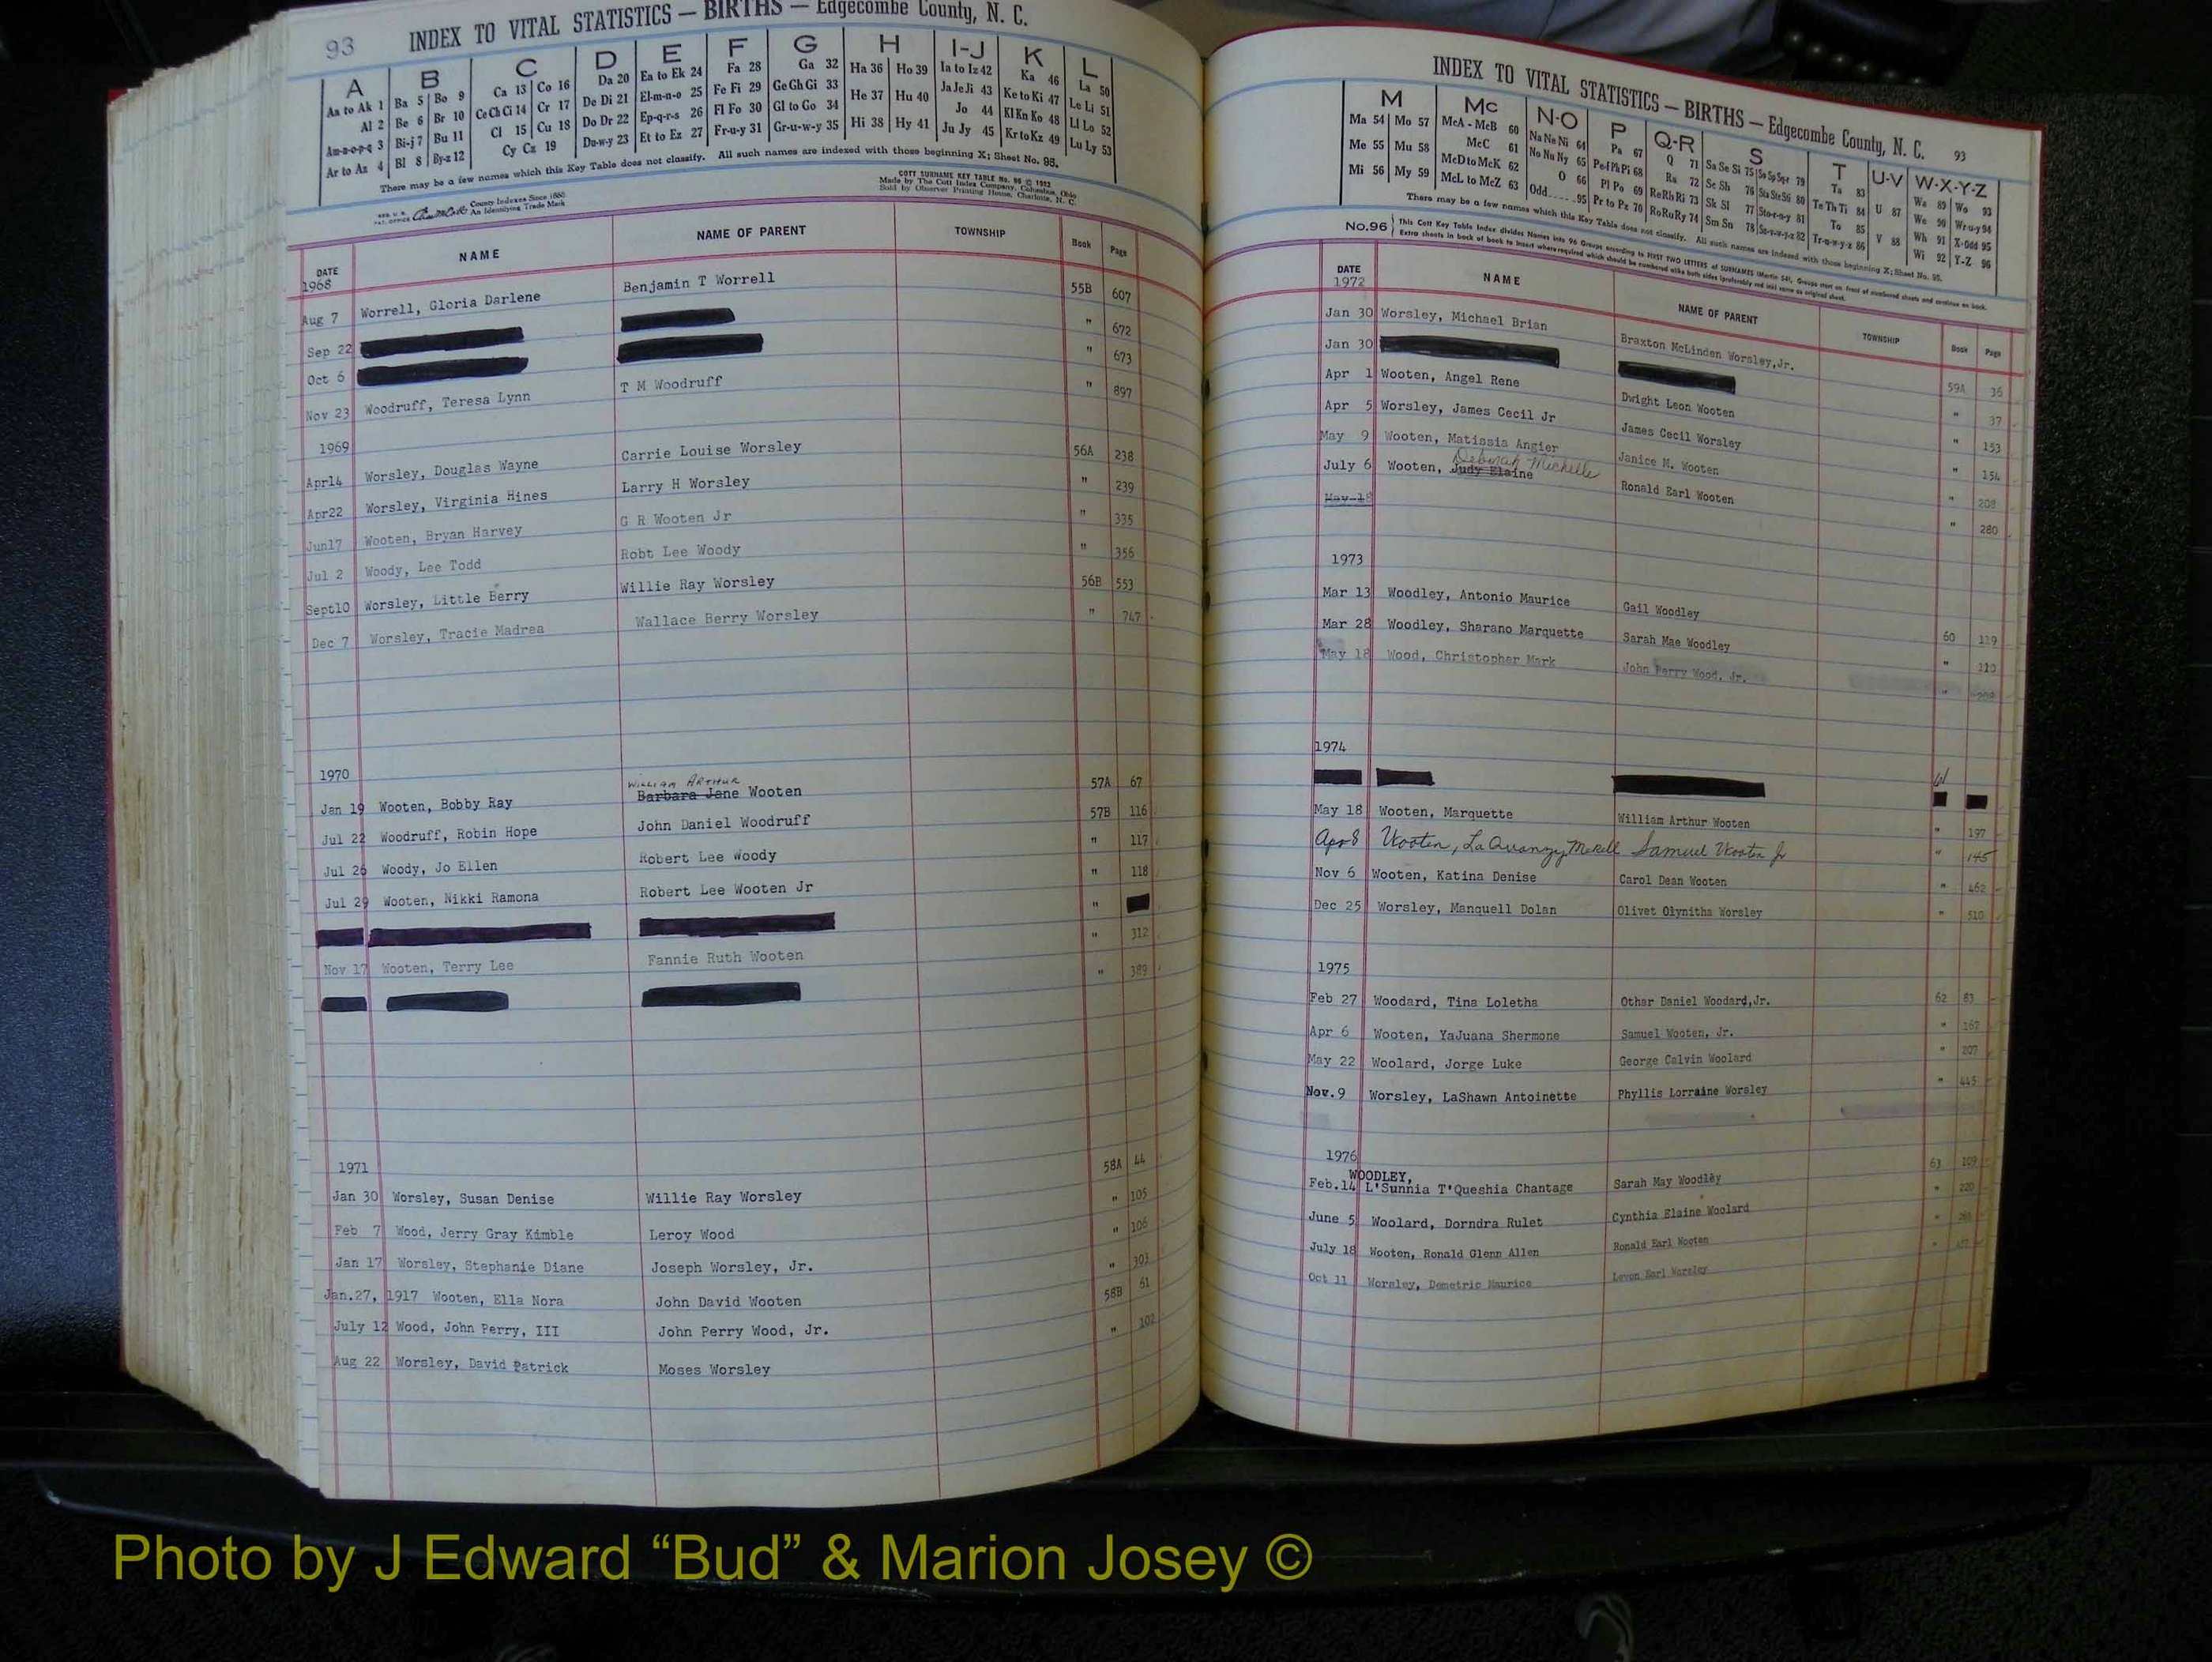 93 INDEX TO VITAL STATISTICS — BIRTHS — Edgecombe County, N. C.
A B C D E F G H I-J K L
Aa to Ak 1 Ba 5 Bo 9 Ca 13 Co 16 Da 20 Ea to Ek 24 Fa 28 Ga 32 Ha 36 Ho 39 Ia to Iz 42 Ka 46 La 50
Al 2 Be 6 Br 10 Ce Ch Ci 14 Cr 17 De Di 21 El-m-n-o 25 Fe Fi 29 Ge Gh Gi 33 He 37 Hu 40 Ja Je Ji 43 Ke to Ki 47 Le Li 51
Am-n-o-p-q 3 Bi-j 7 Bu 11 Cl 15 Cu 18 Do Dr 22 Ep-q-r-s 26 Fl Fo 30 Gl to Go 34 Hi 38 Hy 41 Jo 44 Kl Kn Ko 48 Ll Lo 52
Ar to Az 4 Bl 8 By-z 12 Cy Cz 19 Du-w-y 23 Et to Ez 27 Fr-u-y 31 Gr-u-w-y 35 Ju Jy 45 Kr to Kz 49 Lu Ly 53
There may be a few names which this Key Table does not classify. All such names are indexed with those beginning X; Sheet No. 95.
County Indexes Since 1888
An Identifying Trade Mark
COTT SURNAME KEY TABLE No. 96 © 1953
Made by The Cott Index Company, Columbus, Ohio
Sold by Observer Printing House, Charlotte, N. C.
DATE NAME NAME OF PARENT TOWNSHIP Book Page
1968
Aug 7 Worrell, Gloria Darlene Benjamin T Worrell 55B 607
Sep 22 " 672
Oct 6 " 673
Nov 23 Woodruff, Teresa Lynn T M Woodruff " 897
1969
Apr14 Worsley, Douglas Wayne Carrie Louise Worsley 56A 238
Apr22 Worsley, Virginia Hines Larry H Worsley " 239
Jun17 Wooten, Bryan Harvey G R Wooten Jr " 335
Jul 2 Woody, Lee Todd Robt Lee Woody " 356
Sept10 Worsley, Little Berry Willie Ray Worsley 56B 553
Dec 7 Worsley, Tracie Madrea Wallace Berry Worsley " 747
1970
William Arthur
Jan 19 Wooten, Bobby Ray Barbara Jane Wooten 57A 67
Jul 22 Woodruff, Robin Hope John Daniel Woodruff 57B 116
Jul 26 Woody, Jo Ellen Robert Lee Woody " 117
Jul 29 Wooten, Nikki Ramona Robert Lee Wooten Jr " 118
"
Nov 17 Wooten, Terry Lee Fannie Ruth Wooten " 312
" 389
1971
Jan 30 Worsley, Susan Denise Willie Ray Worsley 58A 44
Feb 7 Wood, Jerry Gray Kimble Leroy Wood " 105
Jan 17 Worsley, Stephanie Diane Joseph Worsley, Jr. " 106
Jan.27, 1917 Wooten, Ella Nora John David Wooten " 303
July 12 Wood, John Perry, III John Perry Wood, Jr. 58B 61
Aug 22 Worsley, David Patrick Moses Worsley " 102
INDEX TO VITAL STATISTICS — BIRTHS — Edgecombe County, N. C. 93
M Mc N-O P Q-R S T U-V W-X-Y-Z
Ma 54 Mo 57 McA - McB 60 Na Ne Ni 64 Pa 67 Q 71 Sa Se Si 75 So Sp Sq 79 Ta 83 U 87 Wa 89 Wo 93
Me 55 Mu 58 McC 61 No Nu Ny 65 Pe-f Ph Pi 68 Ra 72 Sc Sh 76 Sta Ste Sti 80 Te Th Ti 84 V 88 We 90 Wr-u-y 94
Mi 56 My 59 McD to McK 62 O 66 Pl Po 69 Re Rh Ri 73 Sk Sl 77 Sto-r-u-y 81 To 85 Wh 91 X-Odd 95
McL to McZ 63 Odd 95 Pr to Pz 70 Ro Ru Ry 74 Sm Sn 78 Su-v-w-y-z 82 Tr-u-w-y-z 86 Wi 92 Y-Z 96
There may be a few names which this Key Table does not classify. All such names are indexed with those beginning X; Sheet No. 95.
No.96 This Cott Key Table Index divides Names into 96 Groups according to FIRST TWO LETTERS of SURNAMES
DATE NAME NAME OF PARENT TOWNSHIP Book Page
1972
Jan 30 Worsley, Michael Brian Braxton McLinden Worsley,Jr. 59A 36
Jan 30 " 37
Apr 1 Wooten, Angel Rene Dwight Leon Wooten " 153
Apr 5 Worsley, James Cecil Jr James Cecil Worsley " 154
May 9 Wooten, Matissia Angier Janice M. Wooten " 208
Deborah Michelle
July 6 Wooten, Judy Elaine Ronald Earl Wooten " 280
May 18
1973
Mar 13 Woodley, Antonio Maurice Gail Woodley 60 119
Mar 28 Woodley, Sharano Marquette Sarah Mae Woodley " 120
May 18 Wood, Christopher Mark John Perry Wood, Jr. " 208
1974
61
May 18 Wooten, Marquette William Arthur Wooten " 197
Apr 8 Wooten, La Samuel Wooten Jr " 145
Nov 6 Wooten, Katina Denise Carol Dean Wooten " 462
Dec 25 Worsley, Manquell Dolan Olivet Olynitha Worsley " 510
1975
Feb 27 Woodard, Tina Loletha Othar Daniel Woodard,Jr. 62 83
Apr 6 Wooten, YaJuana Shermone Samuel Wooten, Jr. " 167
May 22 Woolard, Jorge Luke George Calvin Woolard " 207
Nov. 9 Worsley, LaShawn Antoinette Phyllis Lorraine Worsley " 445
1976
WOODLEY,
Feb.14 L'Sunnia T'Queshia Chantage Sarah May Woodley 63 109
June 5 Woolard, Dorndra Rulet Cynthia Elaine Woolard " 220
July 18 Wooten, Ronald Glenn Allen Ronald Earl Wooten "
Oct 11 Worsley, Demetric Maurice Levon Earl Worsley "
Photo by J Edward “Bud” & Marion Josey ©